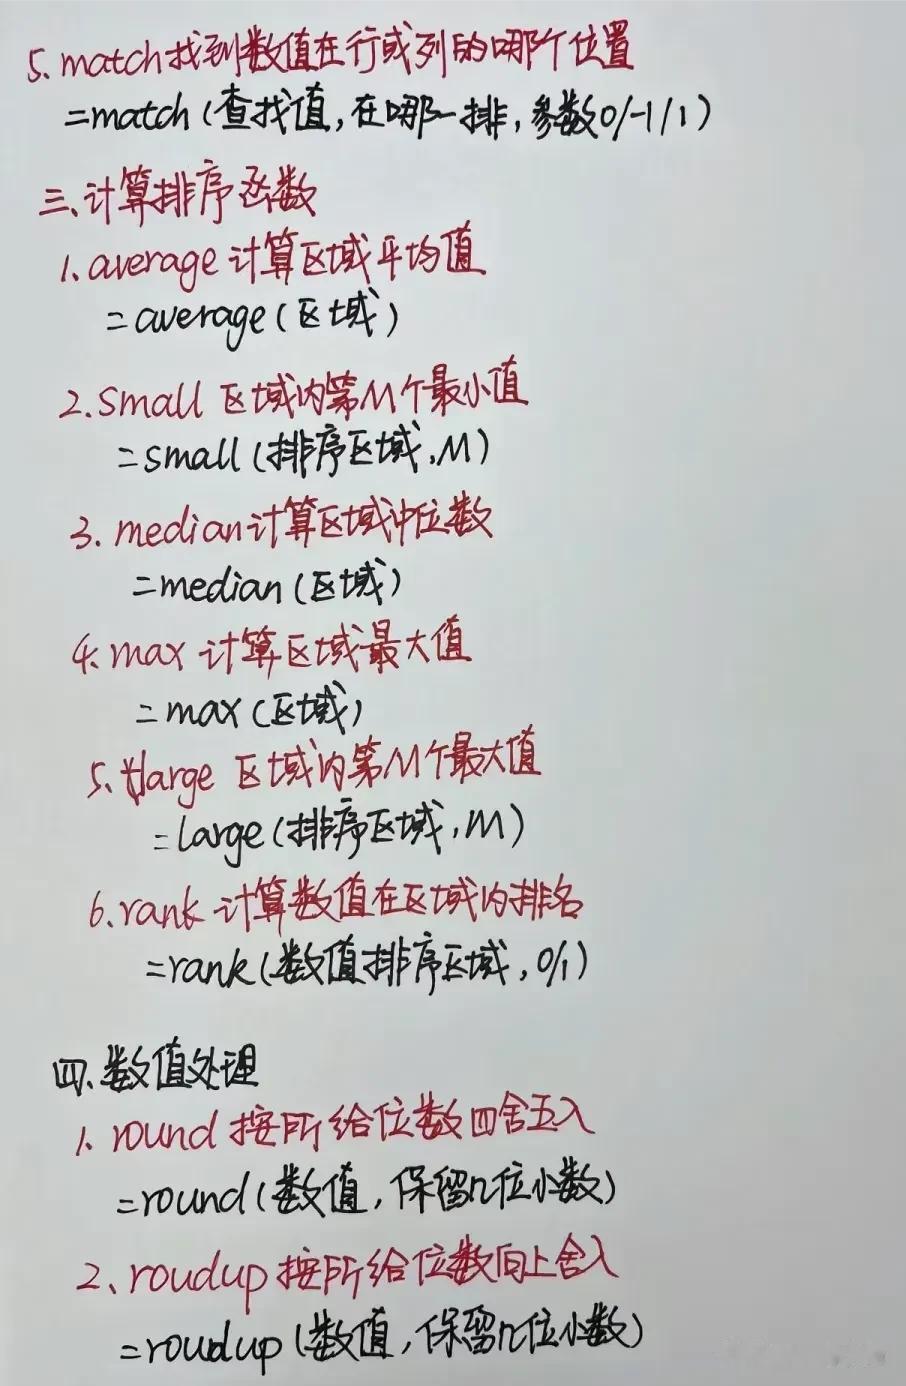 5.match找到数值在行或列的哪个位置
=match(查找值,在哪一排,参数0/-1/1)
三、计算排序函数
1.average计算区域平均值
=average(区域)
2.small 区域内第M个最小值
=small(排序区域,M)
3.median计算区域中位数
=median(区域)
4.max 计算区域最大值
=max(区域)
5.large 区域内第M个最大值
=large(排序区域,M)
6.rank 计算数值在区域内排名
=rank(数值排序区域,0/1)
四、数值处理
1.round 按所给位数四舍五入
=round(数值,保留n位小数)
2、roudup按所给位数向上舍入
=roudup(数值,保留n位小数)